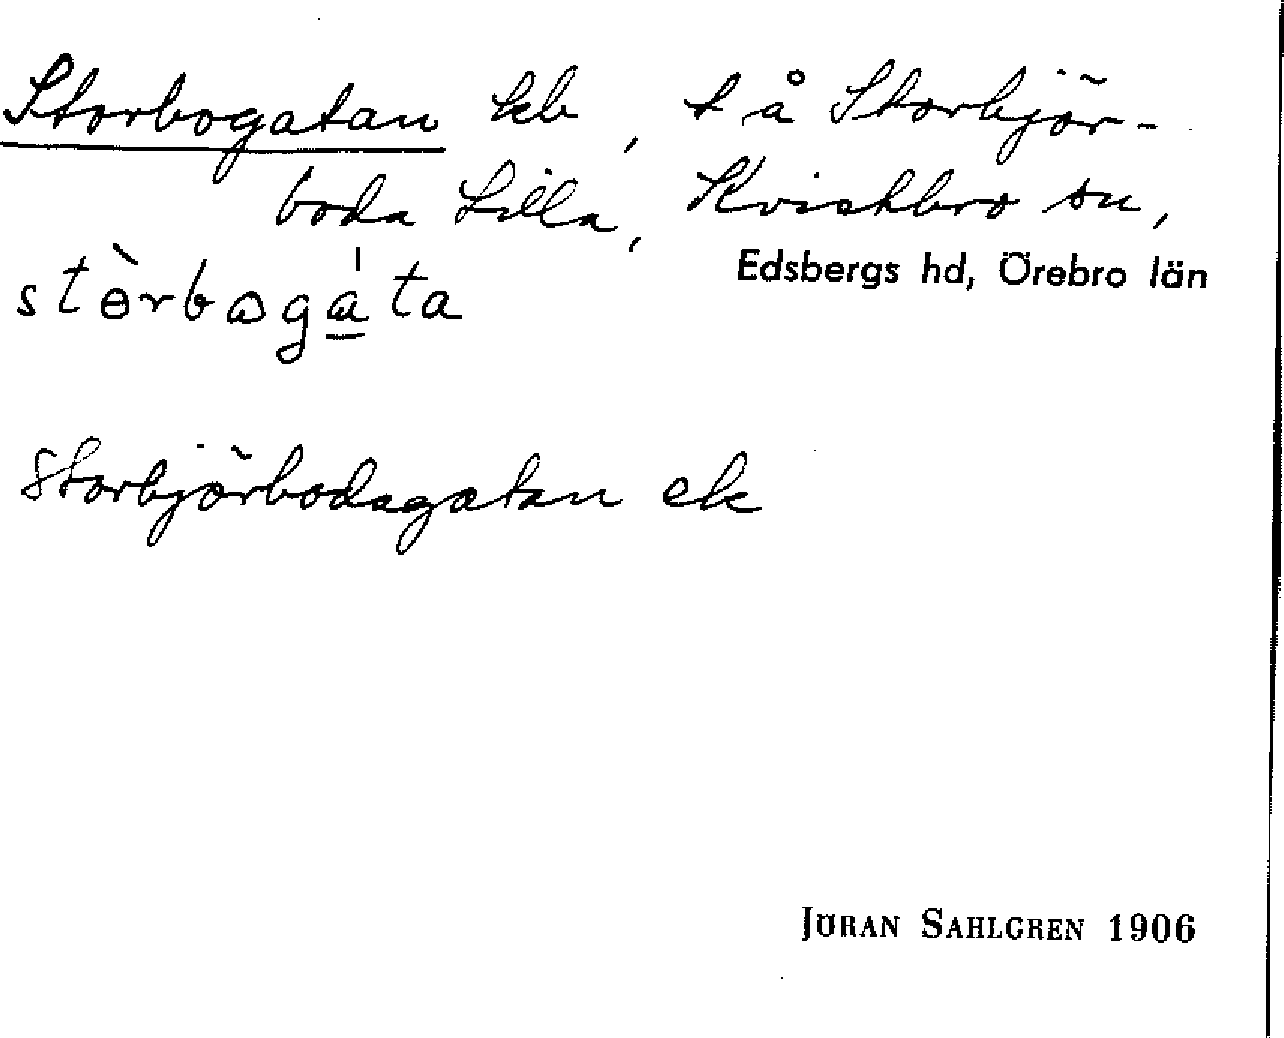 Storbogatan kb, t å Storbjör-
boda Lilla, Kvistbro sn,
Edsbergs hd, Örebro län
stɵ̀rbɷgá̱ta
Storbjörbodagatan ek
JÖRAN SAHLGREN 1906